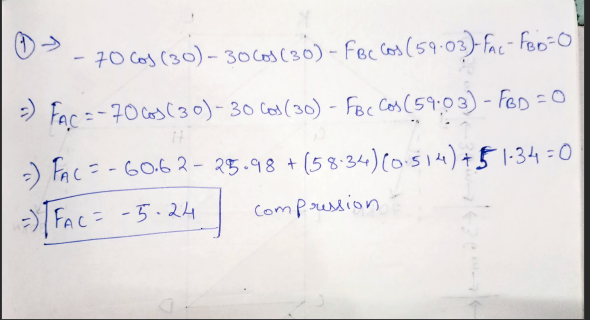 ① → - 70 cos(30) - 30 cos(30) - FBC cos(59.03) - FAC - FBD = 0
=) FAC = - 70 cos(30) - 30 cos(30) - FBC cos(59.03) - FBD = 0
=) FAC = - 60.62 - 25.98 + (58.34)(0.514) + 51.34 = 0
=) FAC = - 5.24 compression